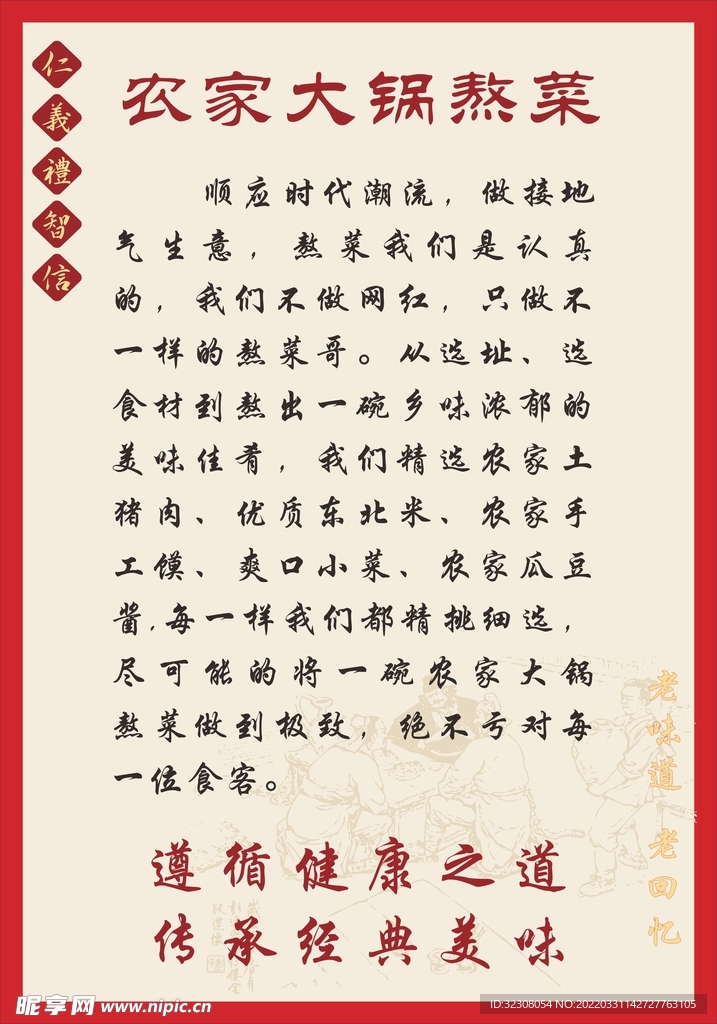 仁
義
禮
智
信
农家大锅熬菜
顺应时代潮流，做接地
气生意，熬菜我们是认真
的，我们不做网红，只做不
一样的熬菜哥。从选址、选
食材到熬出一碗乡味浓郁的
美味佳肴，我们精选农家土
猪肉、优质东北米、农家手
工馍、爽口小菜、农家瓜豆
酱，每一样我们都精挑细选，
尽可能的将一碗农家大锅
熬菜做到极致，绝不亏对每
一位食客。
老味道 老回忆
遵循健康之道
传承经典美味
昵享网 www.nipic.cn
ID:32308054 NO:20220331142727763105